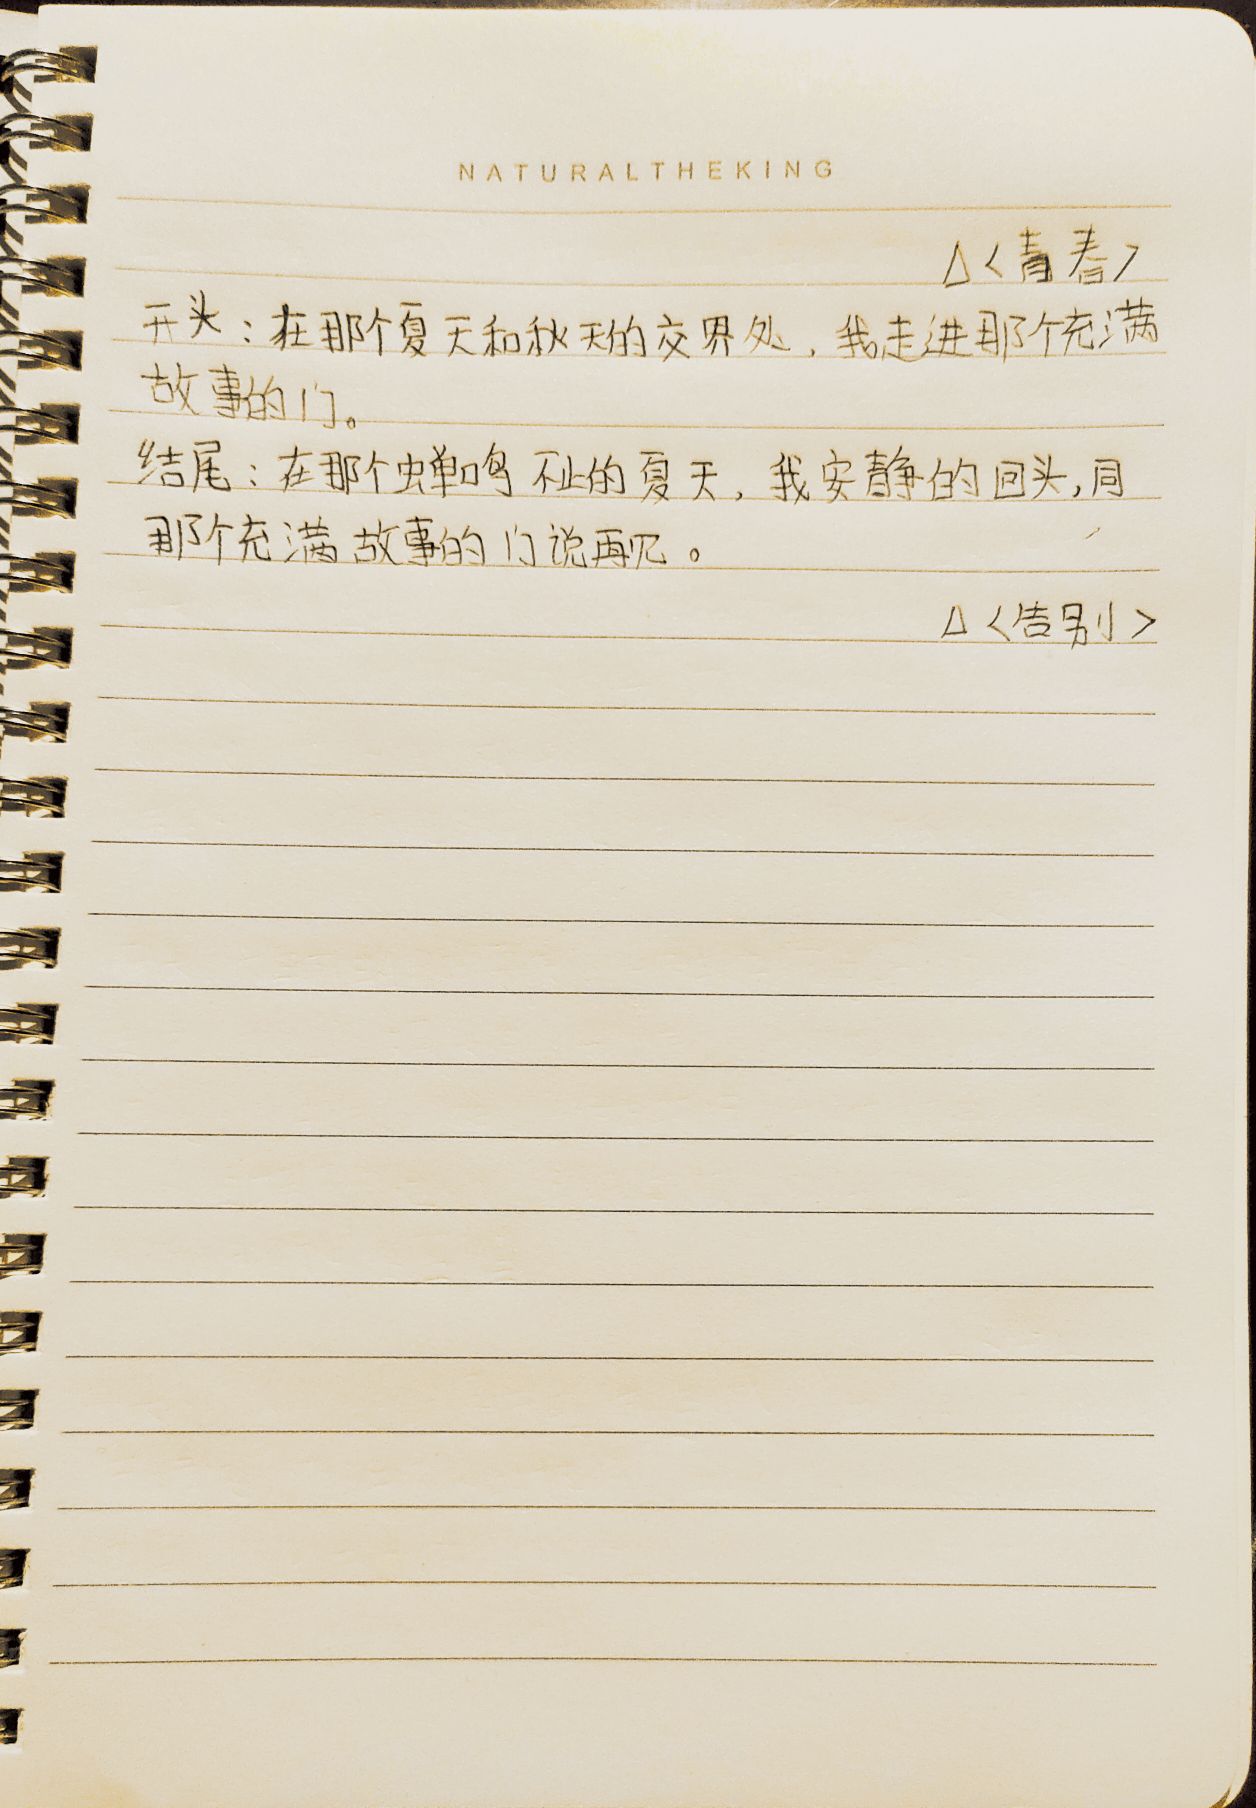 NATURALTHEKING
△<青春>
开头：在那个夏天和秋天的交界处，我走进那个充满
故事的门。
结尾：在那个蝉鸣不止的夏天，我安静的回头，同
那个充满故事的门说再见。
△<告别>